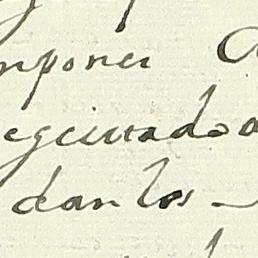 mponer
egecutado
dan los